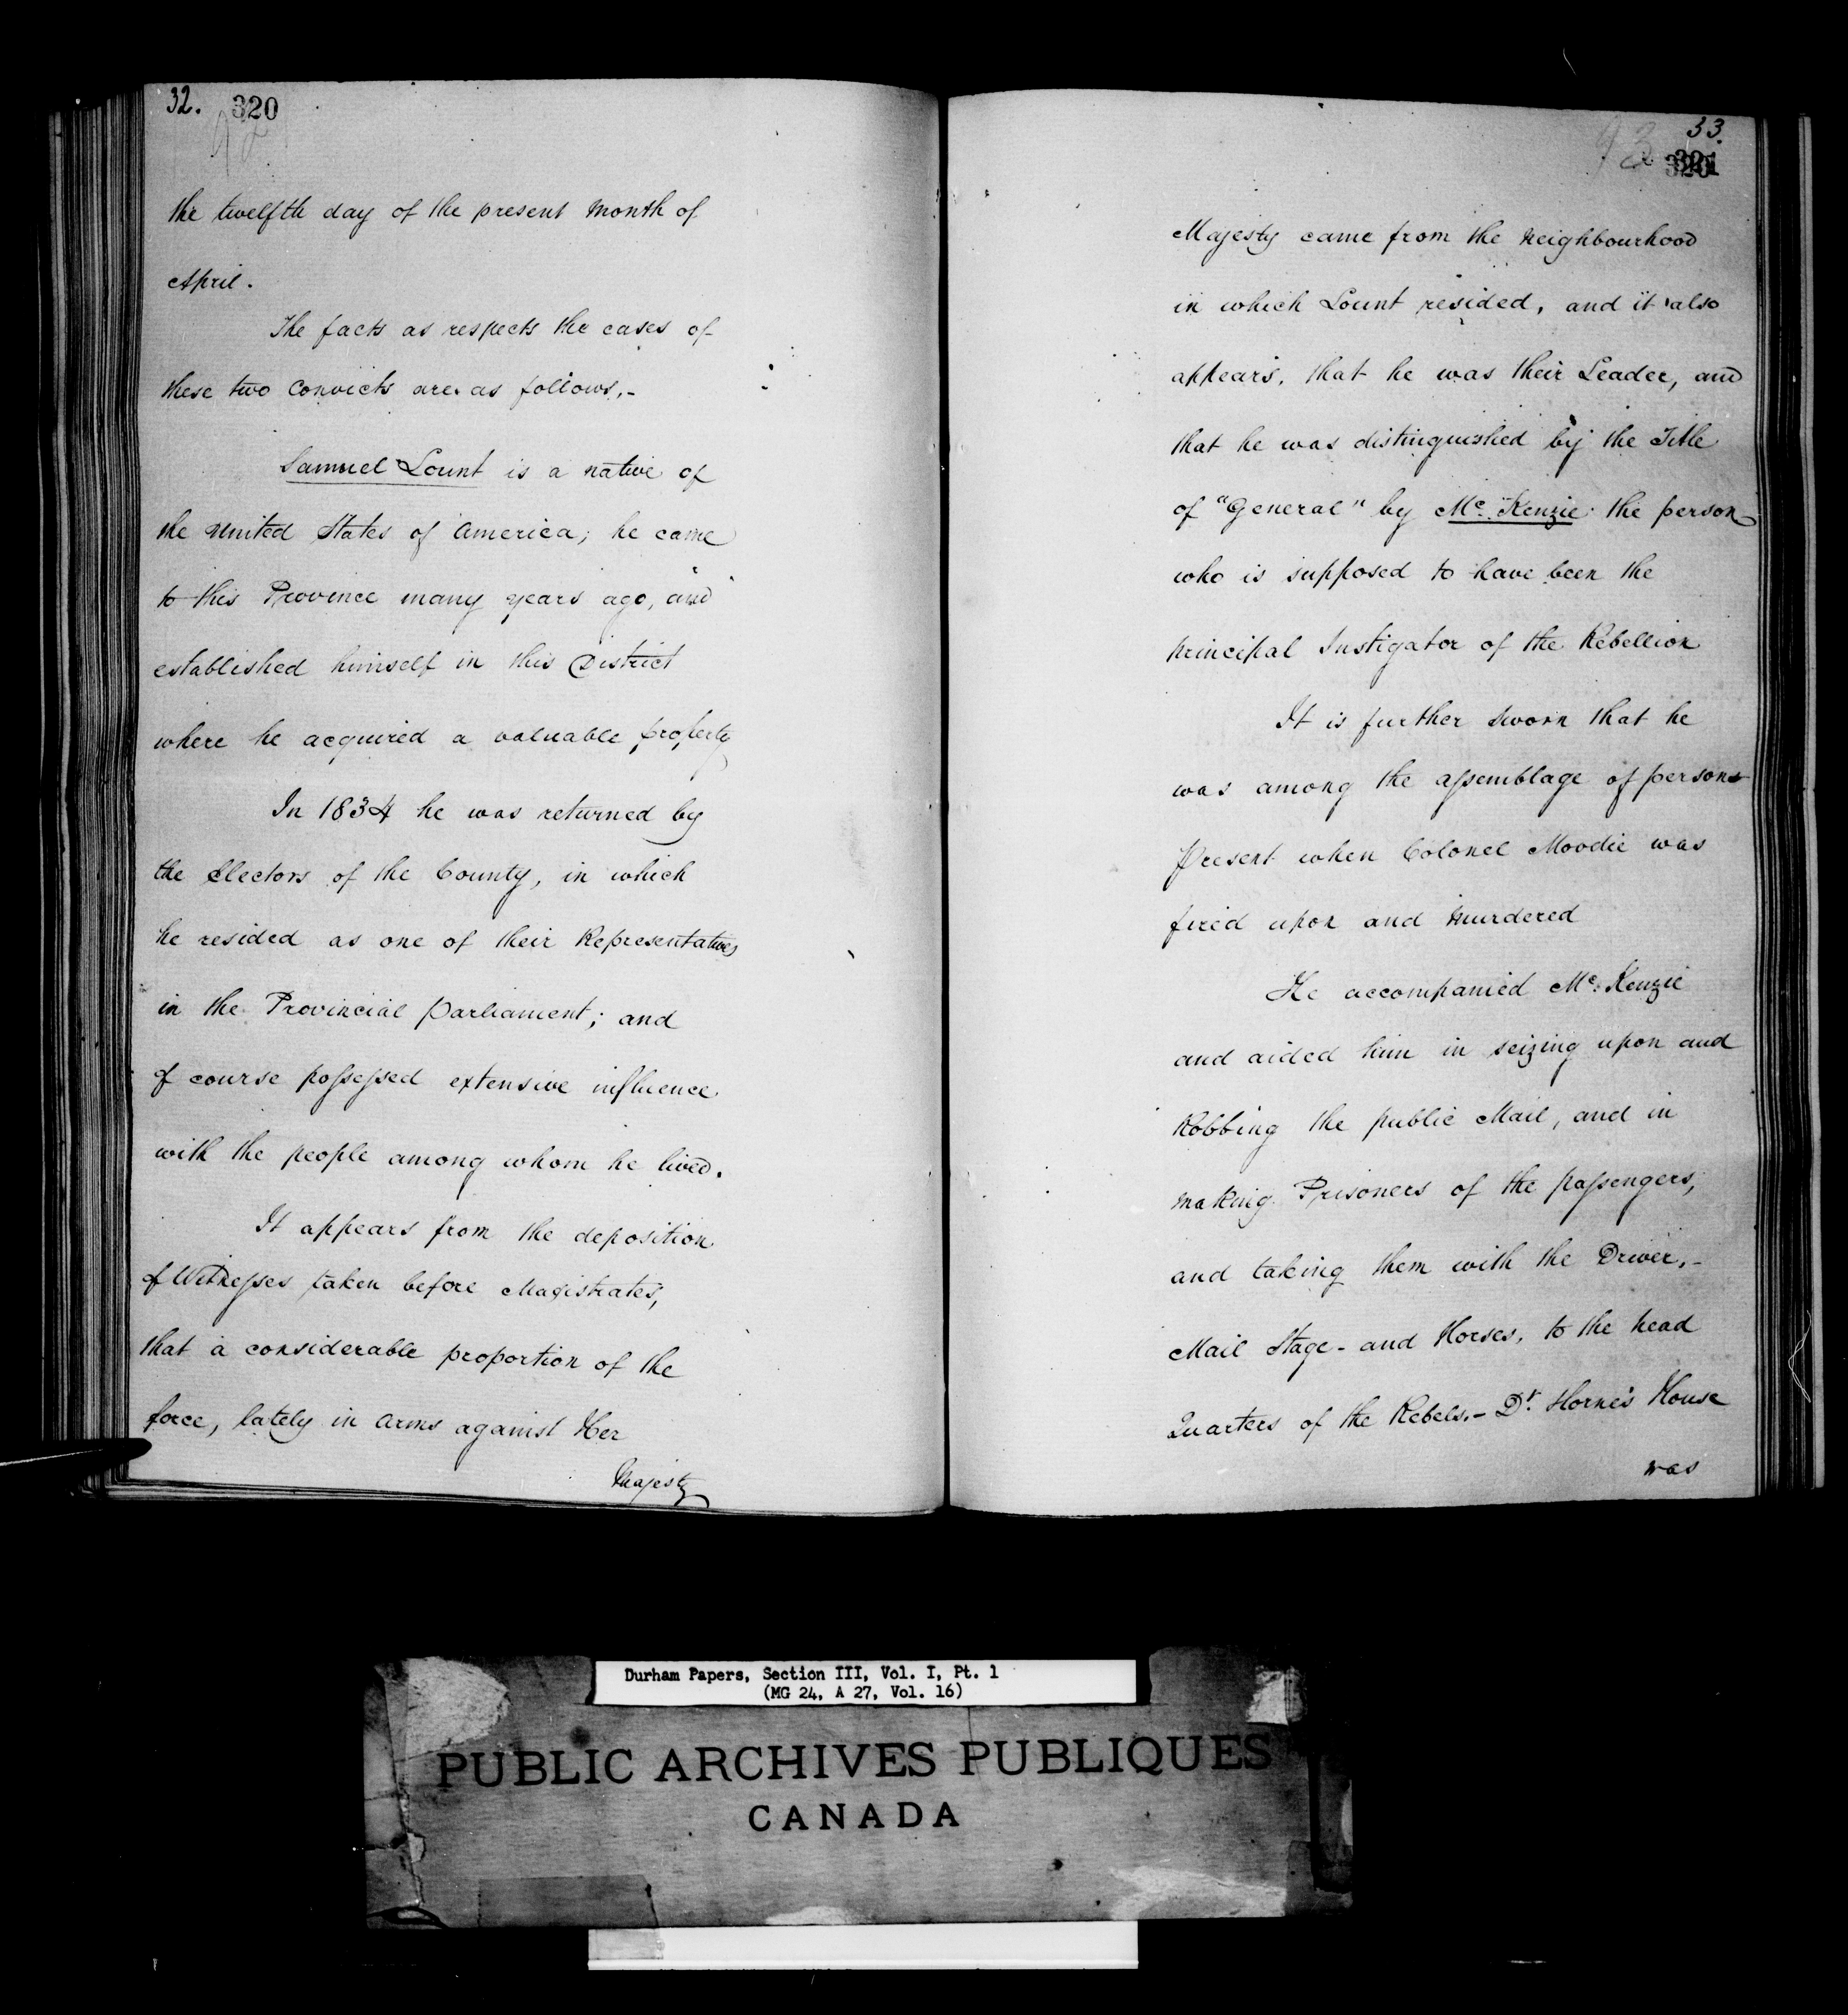 32. 320
92
the twelfth day of the present Month of
April.
The facts as respects the cases of
these two Convicts are as follows.-
Samuel Lount is a native of
the United States of America; he came
to this Province many years ago, and
established himself in this District
where he acquired a valuable property
In 1834 he was returned by
the Electors of the County, in which
he resided as one of their Representatives
in the Provincial Parliament; and
of course possessed extensive influence
with the people among whom he lived.
It appears from the deposition
of Witnesses taken before Magistrates,
that a considerable proportion of the
force, lately in Arms against Her
Majesty
33.
93 321
Majesty came from the Neighbourhood
in which Lount resided, and it also
appears, that he was their Leader, and
that he was distinguished by the Title
of "General" by Mc. Kenzie the person
who is supposed to have been the
principal Instigator of the Rebellion
It is further sworn that he
was among the assemblage of persons
present when Colonel Moodie was
fired upon and Murdered
He accompanied Mc. Kenzie
and aided him in seizing upon and
Robbing the public Mail, and in
making Prisoners of the passengers,
and taking them with the Driver,-
Mail Stage - and Horses, to the head
Quarters of the Rebels.- Dr. Horne's House
was
Durham Papers, Section III, Vol. I, Pt. 1
(MG 24, A 27, Vol. 16)
PUBLIC ARCHIVES PUBLIQUES
CANADA